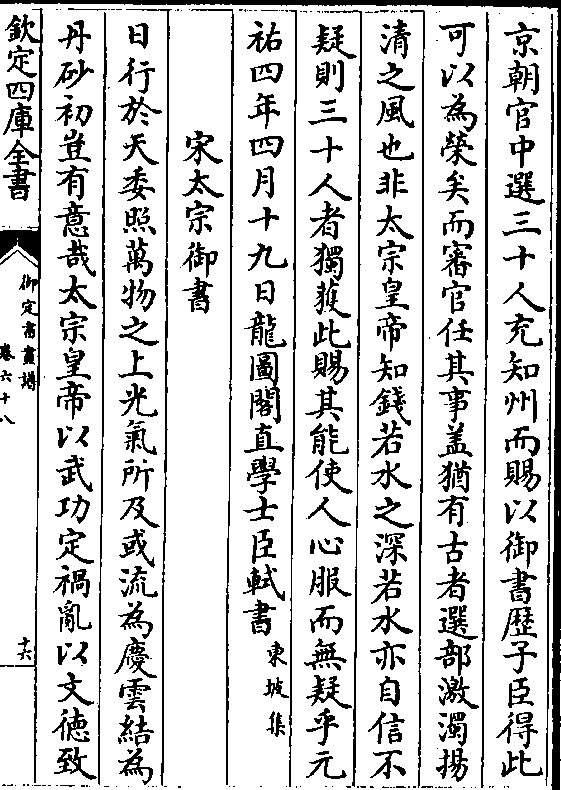 京朝官中選三十人充知州而賜以御書歴子臣得此
可以為榮矣而審官任其事盖猶有古者選部激濁揚
清之風也非太宗皇帝知錢若水之深若水亦自信不
疑則三十人者獨獲此賜其能使人心服而無疑乎元
祐四年四月十九日龍圖閣直學士臣軾書東坡集
宋太宗御書
日行於天委照萬物之上光氣所及或流為慶雲結為
丹砂初豈有意哉太宗皇帝以武功定禍亂以文徳致
欽定四庫全書
御定書畫譜
卷六十八
十六